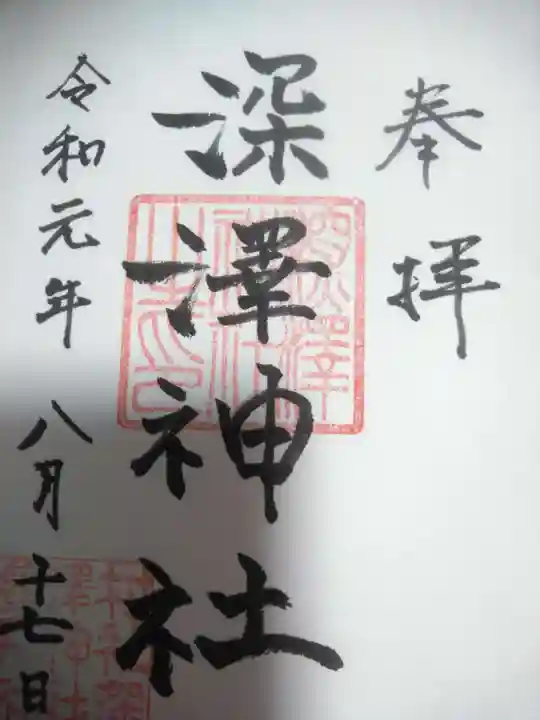 奉拝
深澤神社
令和元年八月十七日